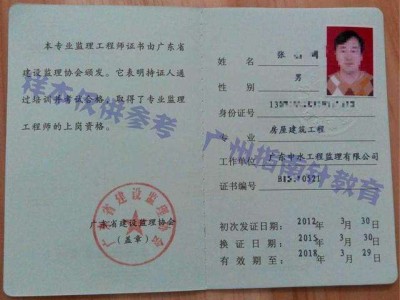 本专业监理工程师证书由广东省
建设监理协会颁发。它表明持证人通
过培训并考试合格，取得了专业监理
工程师的上岗资格。
样本仅供参考
广东省建设监理协会
广东省建设监理协会
（盖章）
姓 名 张
性 别 男
身份证号
专 业 房屋建筑工程
工作单位 广东中水工程监理有限公司
证书编号
广州指南针教育
初次发证日期：2012年 3月 30日
换 证 日 期：2015年 3月 30日
有 效 期 至：2018年 3月 29日